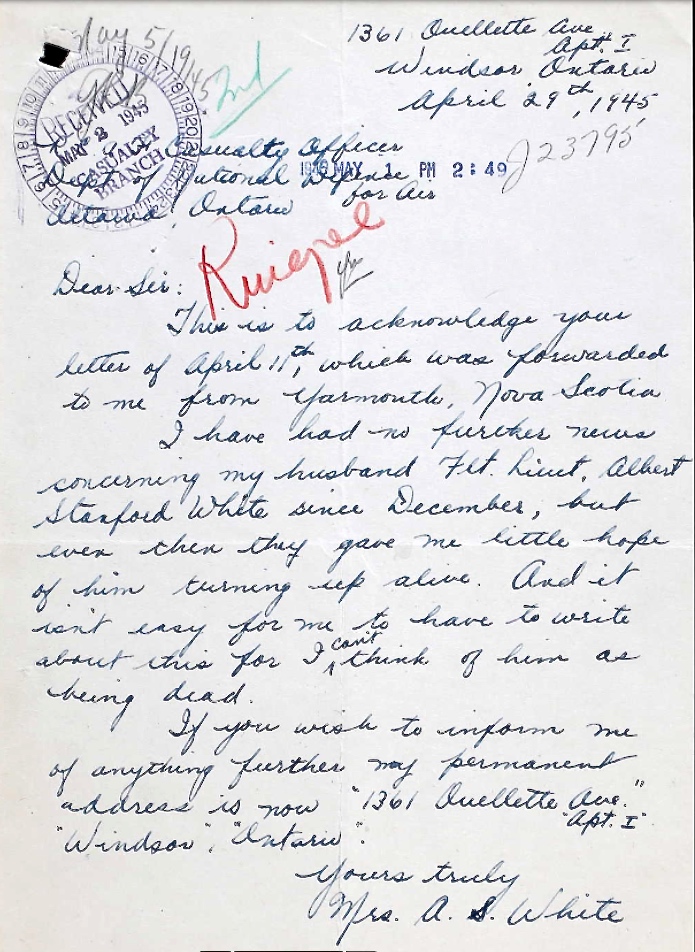 May 5/19/45
2nd
1361 Ouellette Ave.
Apt. I
Windsor Ontario
April 29th, 1945
J23795
RECEIVED
MAY 3 1945
CASUALTY
BRANCH
Casualty Officer
Dept of National Defence
for Air
1945 MAY 1 PM 2:49
Ottawa, Ontario
Dear Sir:
This is to acknowledge your
letter of April 11th, which was forwarded
to me from Yarmouth, Nova Scotia
I have had no further news
concerning my husband Flt. Lieut. Albert
Stanford White since December, but
even then they gave me little hope
of him turning up alive. And it
isn't easy for me to have to write
about this for I can't think of him as
being dead.
If you wish to inform me
of anything further my permanent
address is now "1361 Ouellette Ave."
"Apt. I"
"Windsor", "Ontario".
Yours truly
Mrs. A. S. White